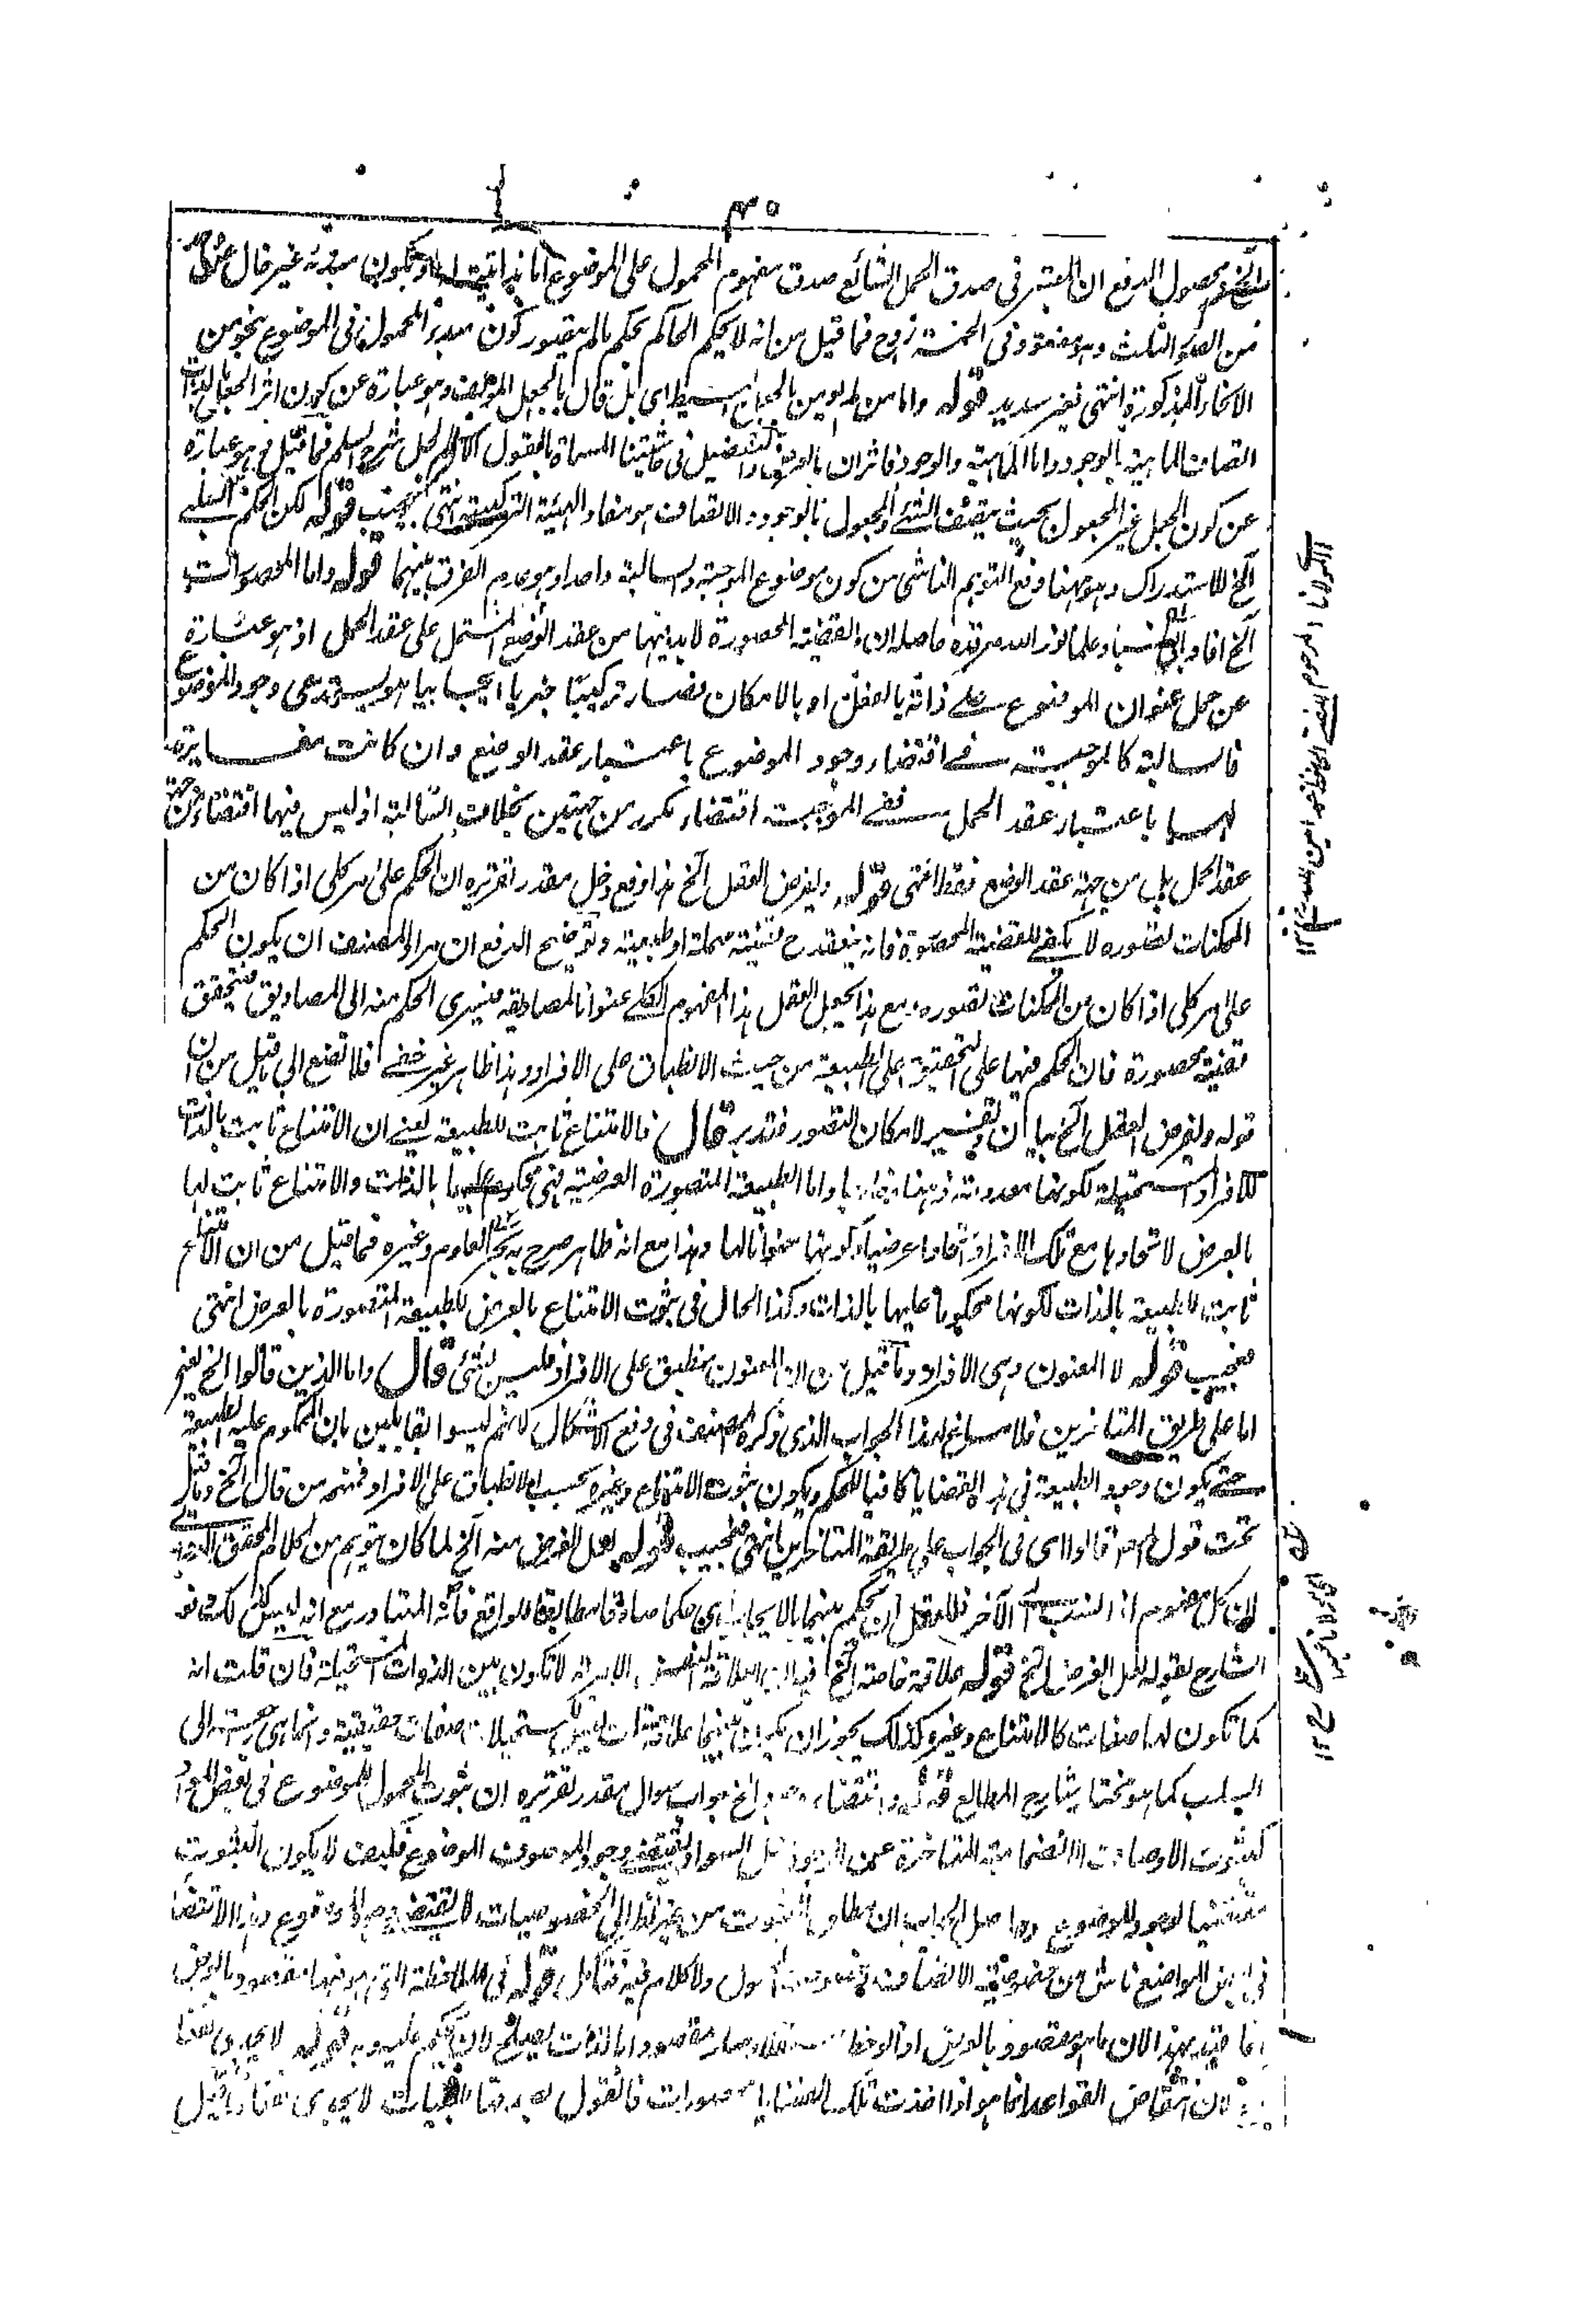 الخ محصول الدفع ان المعتبر فى صدق الحمل الشائع صدق مفهوم المحمول على الموضوع اما بذاتيته او بكون مبدئه غير خال عن
من الصور الثلث وهو مفقود فى الخمسة زوج فما قيل من انه لا يحكم الحاكم بحكم ما لم يتصور كون مبدء المحمول فى الموضوع بنحو من
الانحاء المذكورة انتهى فغير سديد قوله واما من اى بل قال بالجعل المؤلف وهو عبارة عن كون اثر الجعل بالذات
اتصاف الماهية بالوجود واما الماهية والوجود فاثران بالعرض والتفصيل فى حاشيتنا المسماة بالقول لحل شرح السلم فما قيل هو عبارة
عن كون الجعل غير المجعول بحيث الشئ المجعول بالوجود والاتصاف هو مفاد الهيئة التركيبية انتهى عجيب قوله لكن الحكم السلبى
الخ للاستدراك وهو ههنا دفع التوهم الناشى من كون موضوع الموجبة والسالبة واحدا وهو عدم الفرق بينهما قوله واما المحصورات
الخ افاد نور الله مرقده ما حاصله ان القضية المحصورة لا بد فيها من عقد الوضع المشتمل على عقد الحمل اذ هو عبارة
عن حمل عنوان الموضوع على ذاته بالفعل او بالامكان فصار تركيبا خبريا ايجابيا وهو يستدعى وجود الموضوع
فالسالبة كالموجبة فى اقتضاء وجود الموضوع باعتبار عقد الوضع وان كانت مغايرة
لها باعتبار عقد الحمل ففى الموجبة اقتضاء مكرر من جهتين بخلاف السالبة اذ ليس فيها اقتضاء من جهة
عقد الحمل بل من جهة عقد الوضع فقط انتهى قوله وليفرض العقل الخ هذا دفع دخل مقدر تقريره ان الحكم على امر كلى اذا كان من
الممكنات تصوره لا يكفى للقضية المحصورة فانه ينعقد ح قضية مهملة او طبعية وتوضيح الدفع ان مراد المصنف ان يكون الحكم
على امر كلى اذا كان من الممكنات تصوره ومع هذا يجعل العقل هذا المفهوم الكلى عنوانا لمصاديقه فيسرى الحكم منه الى المصاديق فيتحقق
قضية محصورة فان الحكم فيها على التحقيق على الطبيعة من حيث الانطباق على الافراد وهذا ظاهر غير خفى فلا تصغ الى ما قيل من ان
قوله وليفرض العقل الخ بيان وتفسير لامكان التصور فتدبر قال فالامتناع ثابت للطبيعة يعنى ان الامتناع ثابت بالذات
للافراد المستحيلة لكونها معدومة ذهنا وخارجا واما الطبيعة المتصورة العرضية فهى محكوم عليها بالذات والامتناع ثابت لها
بالعرض لاتحادها مع تلك الافراد اتحادا عرضيا لكونها عنوانا لها وهذا مع انه ظاهر صرح به بحر العلوم وغيره فما قيل من ان الامتناع
ثابت للطبيعة بالذات لكونها محكوما عليها بالذات وكذا الحال فى ثبوت الامتناع بالعرض للطبيعة المتصورة بالعرض انتهى
فعجيب قوله لا المعنون وهى الافراد وما قيل من ان المعنون منطبق على الافراد فليس بشئ قال واما الذين قالوا الخ يعنى
اما على طريق المتاخرين فلا مساغ لهذا الجواب الذى ذكره المصنف فى دفع الاشكال لانهم ليسوا بقائلين بان المحكوم عليه الطبيعة
حتى يكون وجود الطبيعة فى هذه القضايا كافيا للحكم ويكون ثبوت الامتناع وغيره بحسب الانطباق على الافراد فمنهم من قال الخ وما قيل
تحت قول المصنف قالوا اى فى الجواب على طريقة المتاخرين انتهى فعجيب قوله لعل الغرض منه الخ لما كان يتوهم من كلام المحقق
ان كل مفهوم اذا نسب الى الآخر فللعقل ان يحكم بينهما بالايجاب اى حكما صادقا مطابقا للواقع فانه المتبادر مع انه ليس كذلك
الشارح بقوله لعل الغرض الخ قوله علاقة خاصة الخ لا تكون بين الذوات المستحيلة فان قلت انه
كما تكون لها صفات كالامتناع وغيره كذلك يجوز ان يكون بينهما علاقة قلت ليس للمستحيلات صفات حقيقية وانما هى راجعة الى
السلب كما هو مختار شارح المطالع قوله واقتضاء الخ جواب سوال مقدر تقريره ان ثبوت المحمول للموضوع فى بعض المواد
كثبوت الاوصاف الانضمامية المتاخرة عن الوجود مثل السواد يقتضى وجود الموصوف الموضوع فكيف لا يكون الثبوت
مقتضيا لوجود الموضوع وحاصل الجواب ان مطلق الثبوت من غير نظر الى الخصوصيات لا يقتضى وجود الموضوع وهذا الاقتضاء
فى بعض المواضع ناش من خصوصية الاتصاف ولا كلام فيه فتامل قوله فى الملاحظة التى هو فيها مقصود بالعرض
انما قيد بهذا لان ما هو مقصود بالعرض اذا لوحظ صار مقصودا بالذات يصلح لان يحكم عليه وبه قوله لا يجدى نفعا
لان انتقاض القواعد انما هو اذا اخذت تلك القضايا محصورات فالقول لا يجدى نفعا وما قيل